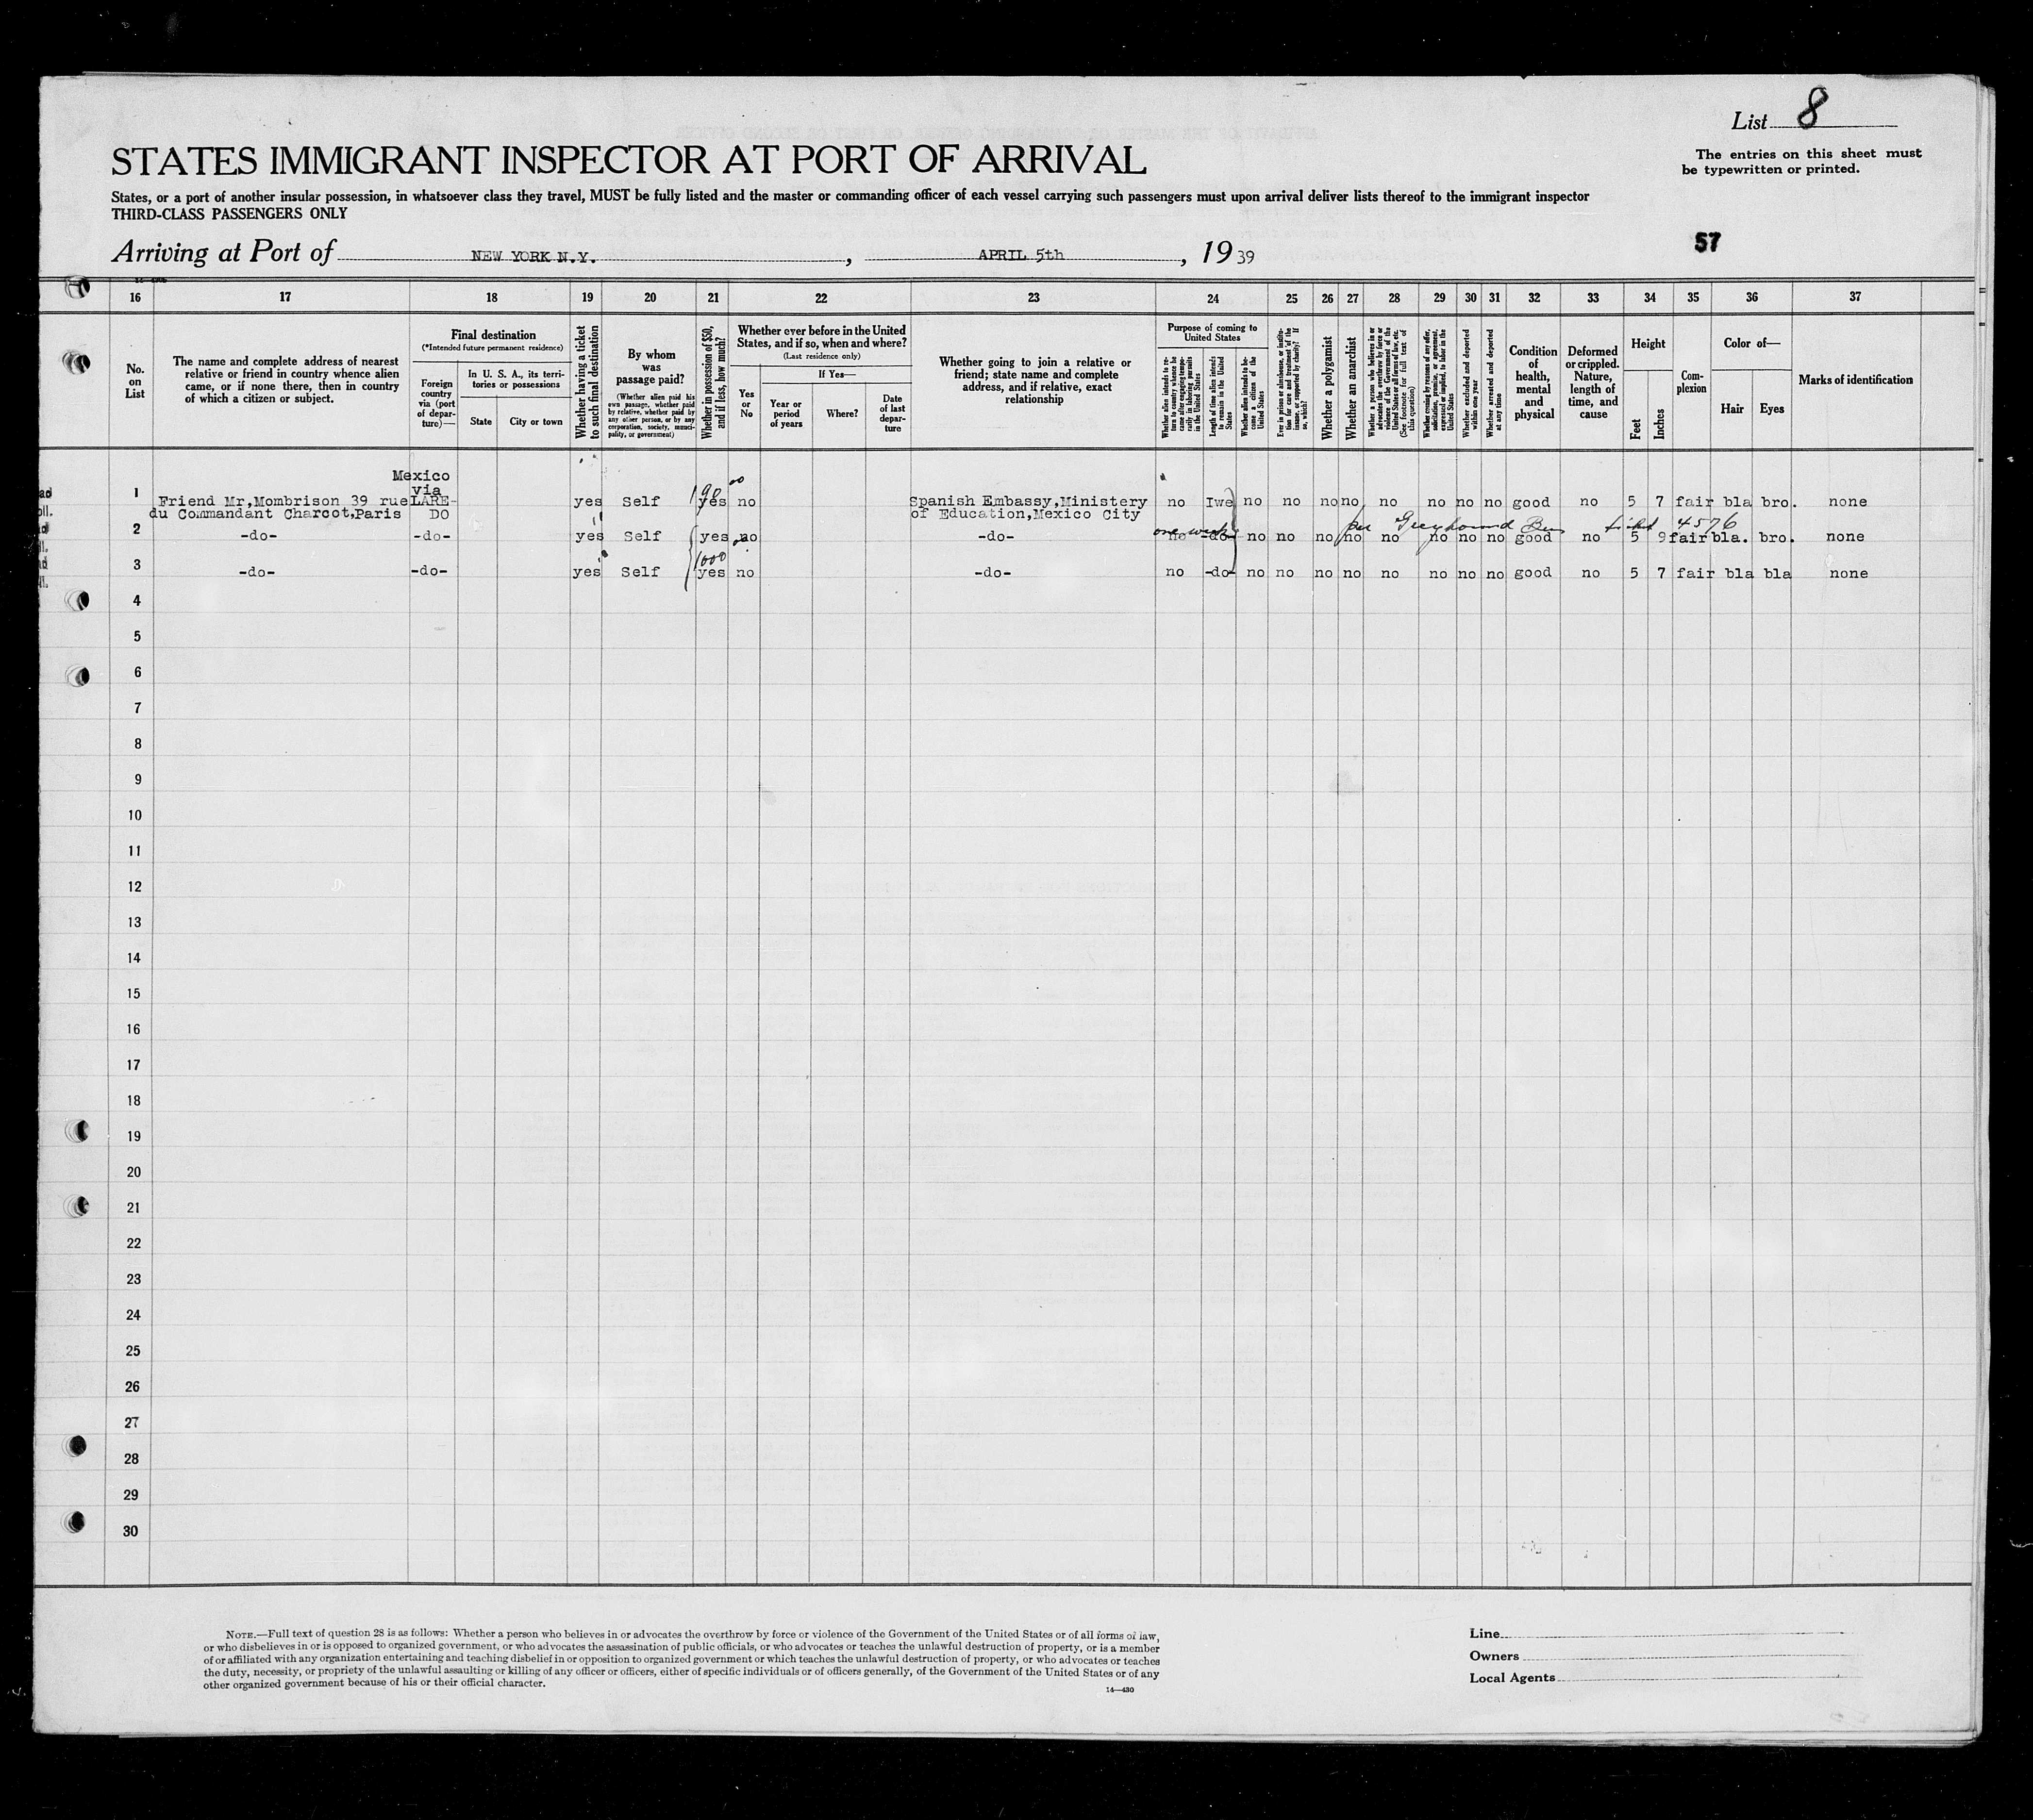 List 8
The entries on this sheet must
be typewritten or printed.
STATES IMMIGRANT INSPECTOR AT PORT OF ARRIVAL
States, or a port of another insular possession, in whatsoever class they travel, MUST be fully listed and the master or commanding officer of each vessel carrying such passengers must upon arrival deliver lists thereof to the immigrant inspector
THIRD-CLASS PASSENGERS ONLY
57
Arriving at Port of NEW YORK N.Y. , APRIL 5th , 19 39
16 17 18 19 20 21 22 23 24 25 26 27 28 29 30 31 32 33 34 35 36 37
No. on List
The name and complete address of nearest
relative or friend in country whence alien
came, or if none there, then in country
of which a citizen or subject.
Final destination
(*Intended future permanent residence)
Foreign
country
via (port
of depar-
ture)—
In U. S. A., its terri-
tories or possessions
State City or town
Whether having a ticket
to such final destination
By whom
was
passage paid?
(Whether alien paid his
own passage, whether paid
by relative, whether paid by
any other person, or by any
corporation, society, munici-
pality, or government)
Whether in possession of $50,
and if less, how much?
Whether ever before in the United
States, and if so, when and where?
(Last residence only)
Yes
or
No
If Yes—
Year or
period
of years
Where?
Date
of last
depar-
ture
Whether going to join a relative or
friend; state name and complete
address, and if relative, exact
relationship
Purpose of coming to
United States
Whether alien intends to re-
turn to country whence he
came after engaging tempo-
rarily in laboring pursuits
in the United States
Length of time alien intends
to remain in the United
States
Whether alien intends to be-
come a citizen of the
United States
Ever in prison or almshouse, or institu-
tion for care and treatment of the
insane, or supported by charity? If
so, which?
Whether a polygamist
Whether an anarchist
Whether a person who believes in or
advocates the overthrow by force or
violence of the Government of the
United States or all forms of law, etc.
(See footnote for full text of
this question)
Whether coming by reasons of any offer,
solicitation, promise, or agreement,
expressed or implied, to labor in the
United States
Whether excluded and deported
within one year
Whether arrested and deported
at any time
Condition
of
health,
mental
and
physical
Deformed
or crippled.
Nature,
length of
time, and
cause
Height
Feet
Inches
Com-
plexion
Color of—
Hair Eyes
Marks of identification
Mexico
via
1 Friend Mr,Mombrison 39 rue LARE- yes Self 190 00 yes no Spanish Embassy,Ministery no Iwe no no no no no no no no good no 5 7 fair bla bro. none
du Commandant Charcot,Paris DO of Education,Mexico City
one week per Greyhound Bus ticket 4576
2 -do- -do- yes Self yes no -do- no -do- no no no no no no no no good no 5 9 fair bla. bro. none
1000
3 -do- -do- yes Self yes no -do- no -do- no no no no no no no no good no 5 7 fair bla bla none
4
5
6
7
8
9
10
11
12
13
14
15
16
17
18
19
20
21
22
23
24
25
26
27
28
29
30
NOTE.—Full text of question 28 is as follows: Whether a person who believes in or advocates the overthrow by force or violence of the Government of the United States or of all forms of law,
or who disbelieves in or is opposed to organized government, or who advocates the assassination of public officials, or who advocates or teaches the unlawful destruction of property, or is a member
of or affiliated with any organization entertaining and teaching disbelief in or opposition to organized government or which teaches the unlawful destruction of property, or who advocates or teaches
the duty, necessity, or propriety of the unlawful assaulting or killing of any officer or officers, either of specific individuals or of officers generally, of the Government of the United States or of any
other organized government because of his or their official character.
14—430
Line
Owners
Local Agents